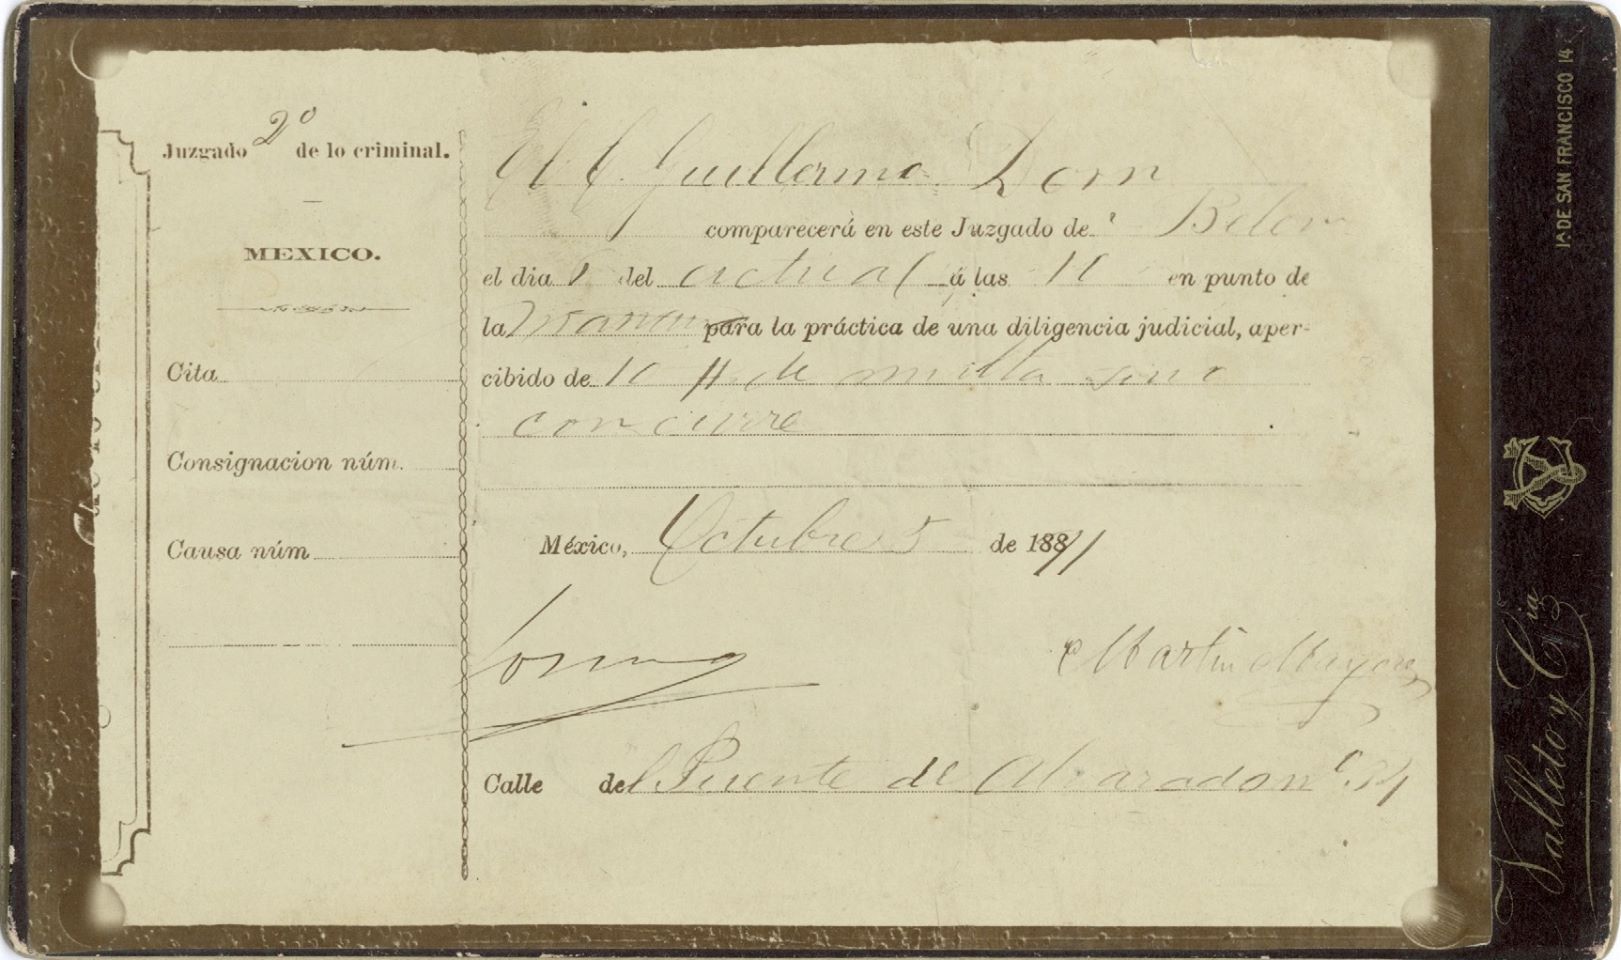 Juzgado 2º de lo criminal.
MEXICO.
Cita
Consignacion núm.
Causa núm
El C. Guillermo Dom
comparecerá en este Juzgado de Belem
el dia del actual á las 10 en punto de
la mañana para la práctica de una diligencia judicial, aper-
cibido de 10 $ de multa sino
concurre
México, Octubre 5 de 1891
Martin Mayora
Calle del Puente de Alvarado nº
1ª DE SAN FRANCISCO 14
Valleto y Cia